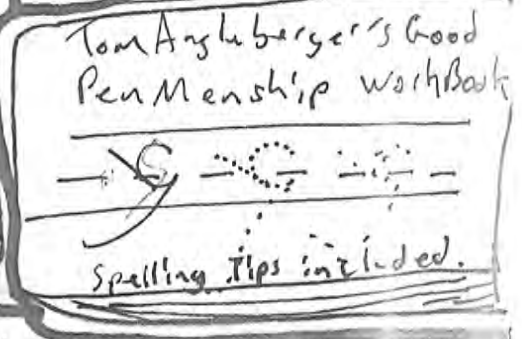 Tom Angleberger's Good
PenMenship WorkBook
Spelling Tips included.